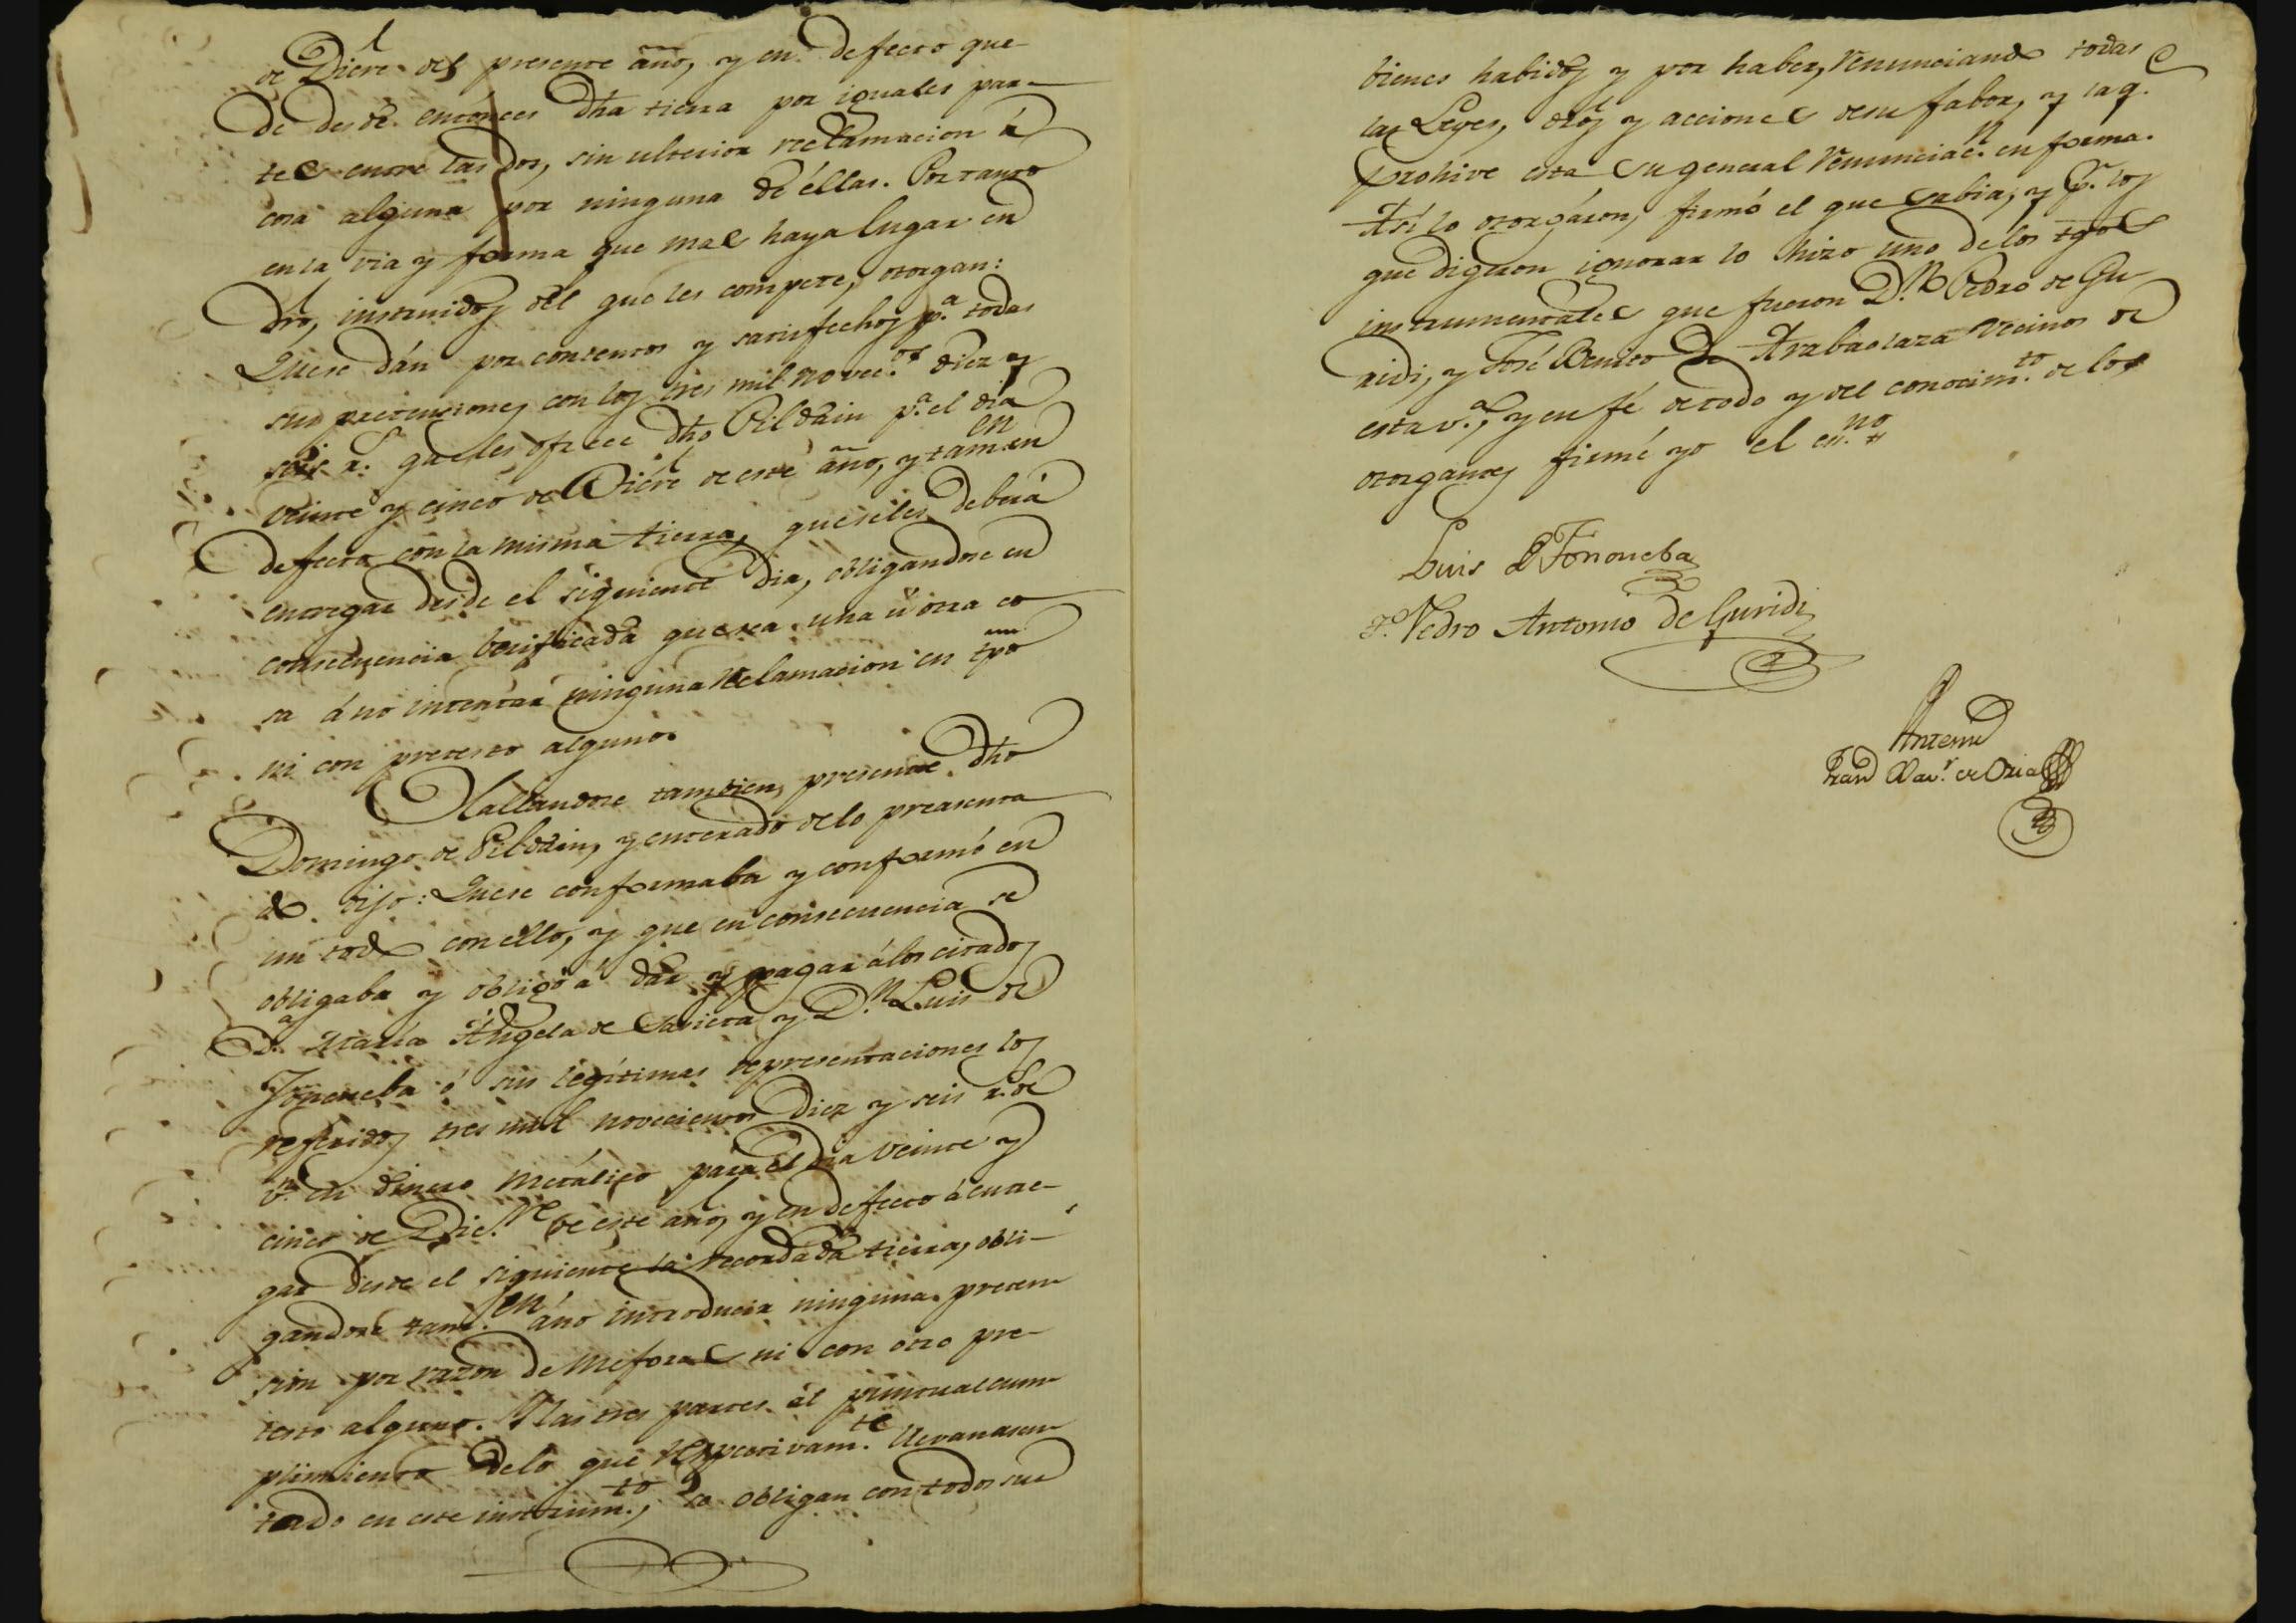 de Dicre del presente año, y en defecto que-
de desde entónces dha tierra por iguales par-
tes entre las dos, sin ulterior reclamacion á
cosa alguna por ninguna de éllas. Por tanto
en la via y forma que mas haya lugar en
dro, instruidos del que les compete, otorgan:
Que se dán por contentos y satisfechos p.a todas
sus pretensiones con los tres mil novec.os diez y
seis r.s que les ofrece dho Pildain p.a el dia
veinte y cinco de Dicre de este año, y tam.en en
defecto con la misma tierra, que seles deberá
entregar desde el siguiente dia, obligandose en
consecuencia berificada que sea una ú otra co
sa á no intentar ninguna reclamacion en tpo
ni con pretesto alguno.
Hallandose tambien presente dho
Domingo de Pildain, y enterado de lo preasenta
do dijo: Que se conformaba y conformó en
un todo con ello, y que en consecuencia se
obligaba y obligó á dar y pagar á los citados
D.a Maria Angela de Sarieta y D.n Luis de
Tononeba ó sus legítimas representaciones los
referidos tres mil novecientos diez y seis r.s de
v.n en dinero metálico para el dia veinte y
cinco de Dic.re de este año, y en defecto á entre-
gar desde el siguiente la recordada tierra, obli-
gandose tam.en á no introducir ninguna preten
sion por razon de mejoras ni con otro pre-
testo alguno. Y las tres partes al puntual cum
plimiento delo que respectivam.te llevan asen
tado en este instrum.to, se obligan con todos sus
bienes habidos y por haber, renunciando todas
las Leyes, dros y acciones desu fabor, y la q.e
prohive esta su general renunciac.n en forma.
Así lo otorgáron, firmó el que sabia, y p.r los
que digeron ignorar lo hizo uno delos tgos
instrumentales que fueron D.n Pedro de Gu
ridi, y José Benito de Arabaolaza vecinos de
esta v.a, y en fé de todo y del conocim.to de los
otorgantes firmé yo el es.no
Luis D Tononeba
T.o Pedro Antonio de Guridi
Antemi
Fran.co Xav.r de Oria